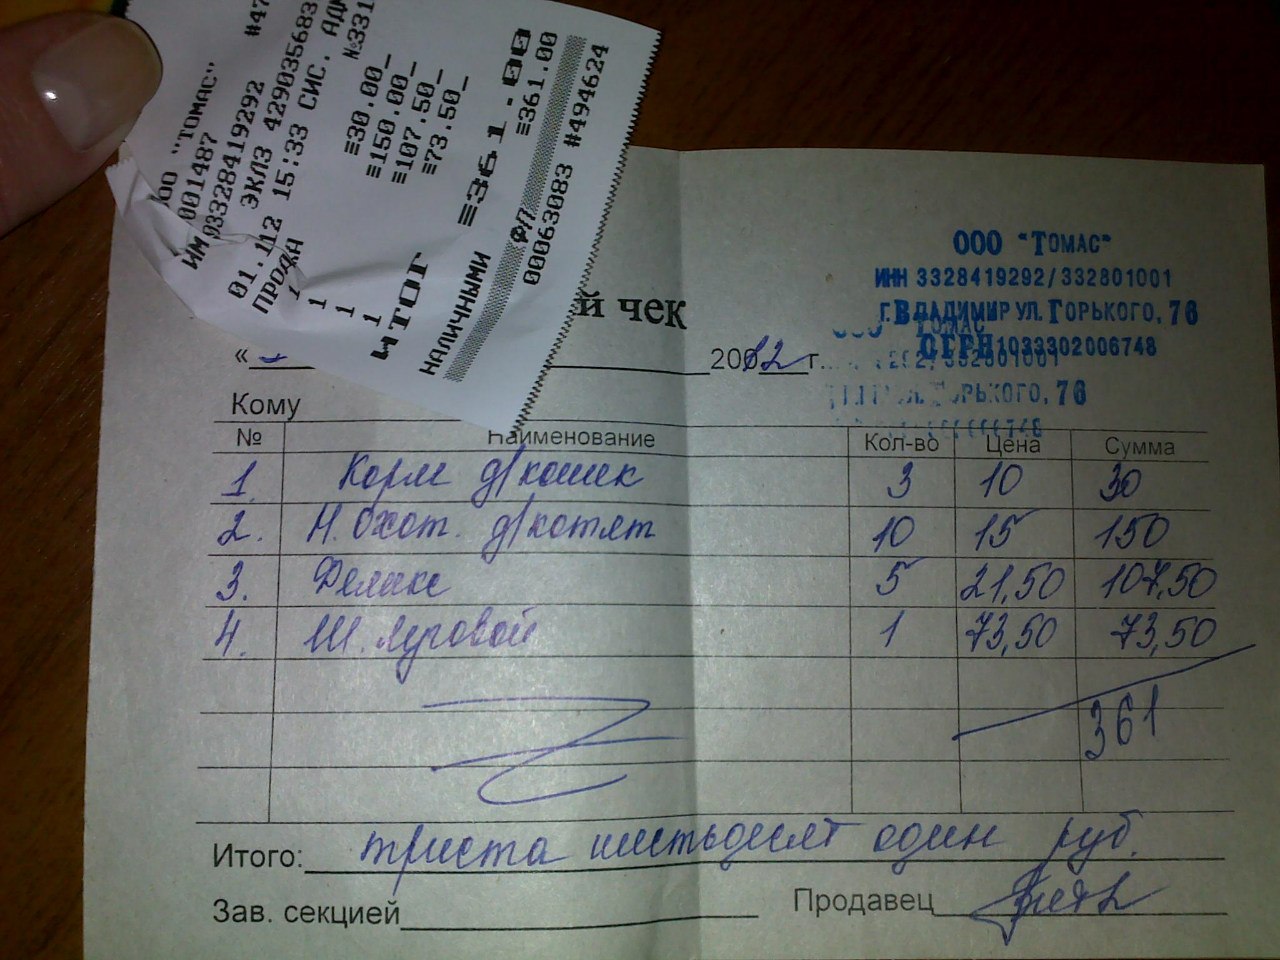 ООО "ТОМАС"
001487 #47
ИМ 03328419292
ЭКЛЗ 429035683
15:33 СИС. АДМ
ПРОДА №331
1 ≡30.00_
1 ≡150.00_
1 ≡107.50_
1 ≡73.50_
ИТОГ ≡361.00
НАЛИЧНЫМИ ≡361.00
ФП
00063083 #494624
ООО "ТОМАС"
ИНН 3328419292/332801001
Г.ВЛАДИМИР УЛ.ГОРЬКОГО, 76
ОГРН 1033302006748
й чек
« 2012 г.
Кому
№ Наименование Кол-во Цена Сумма
1. Корм д/кошек 3 10 30
2. Н. охот. д/котят 10 15 150
3. Делакс 5 21,50 107,50
4. Ш. луговой 1 73,50 73,50
361
Итого: триста шестьдесят один руб.
Зав. секцией Продавец